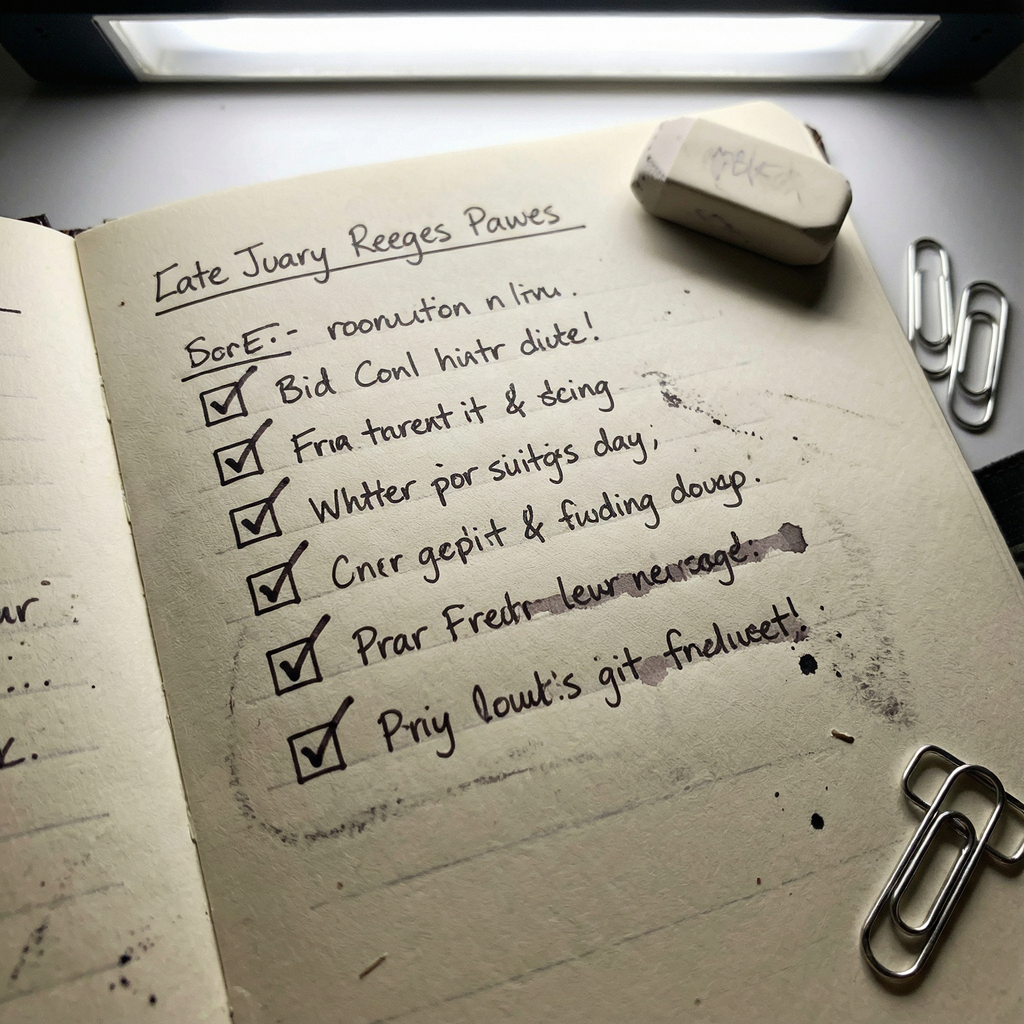 ur
k.
Late Juary Reeges Pawes
SorE:- roonution n livu.
Bid Conl hiatr diute!
Fria tarent it & scing
Whtter por suitgs day,
Cner gepit & fwding douap.
Prar Fredr lewr nersage:
Priy lowk's git fneluset!